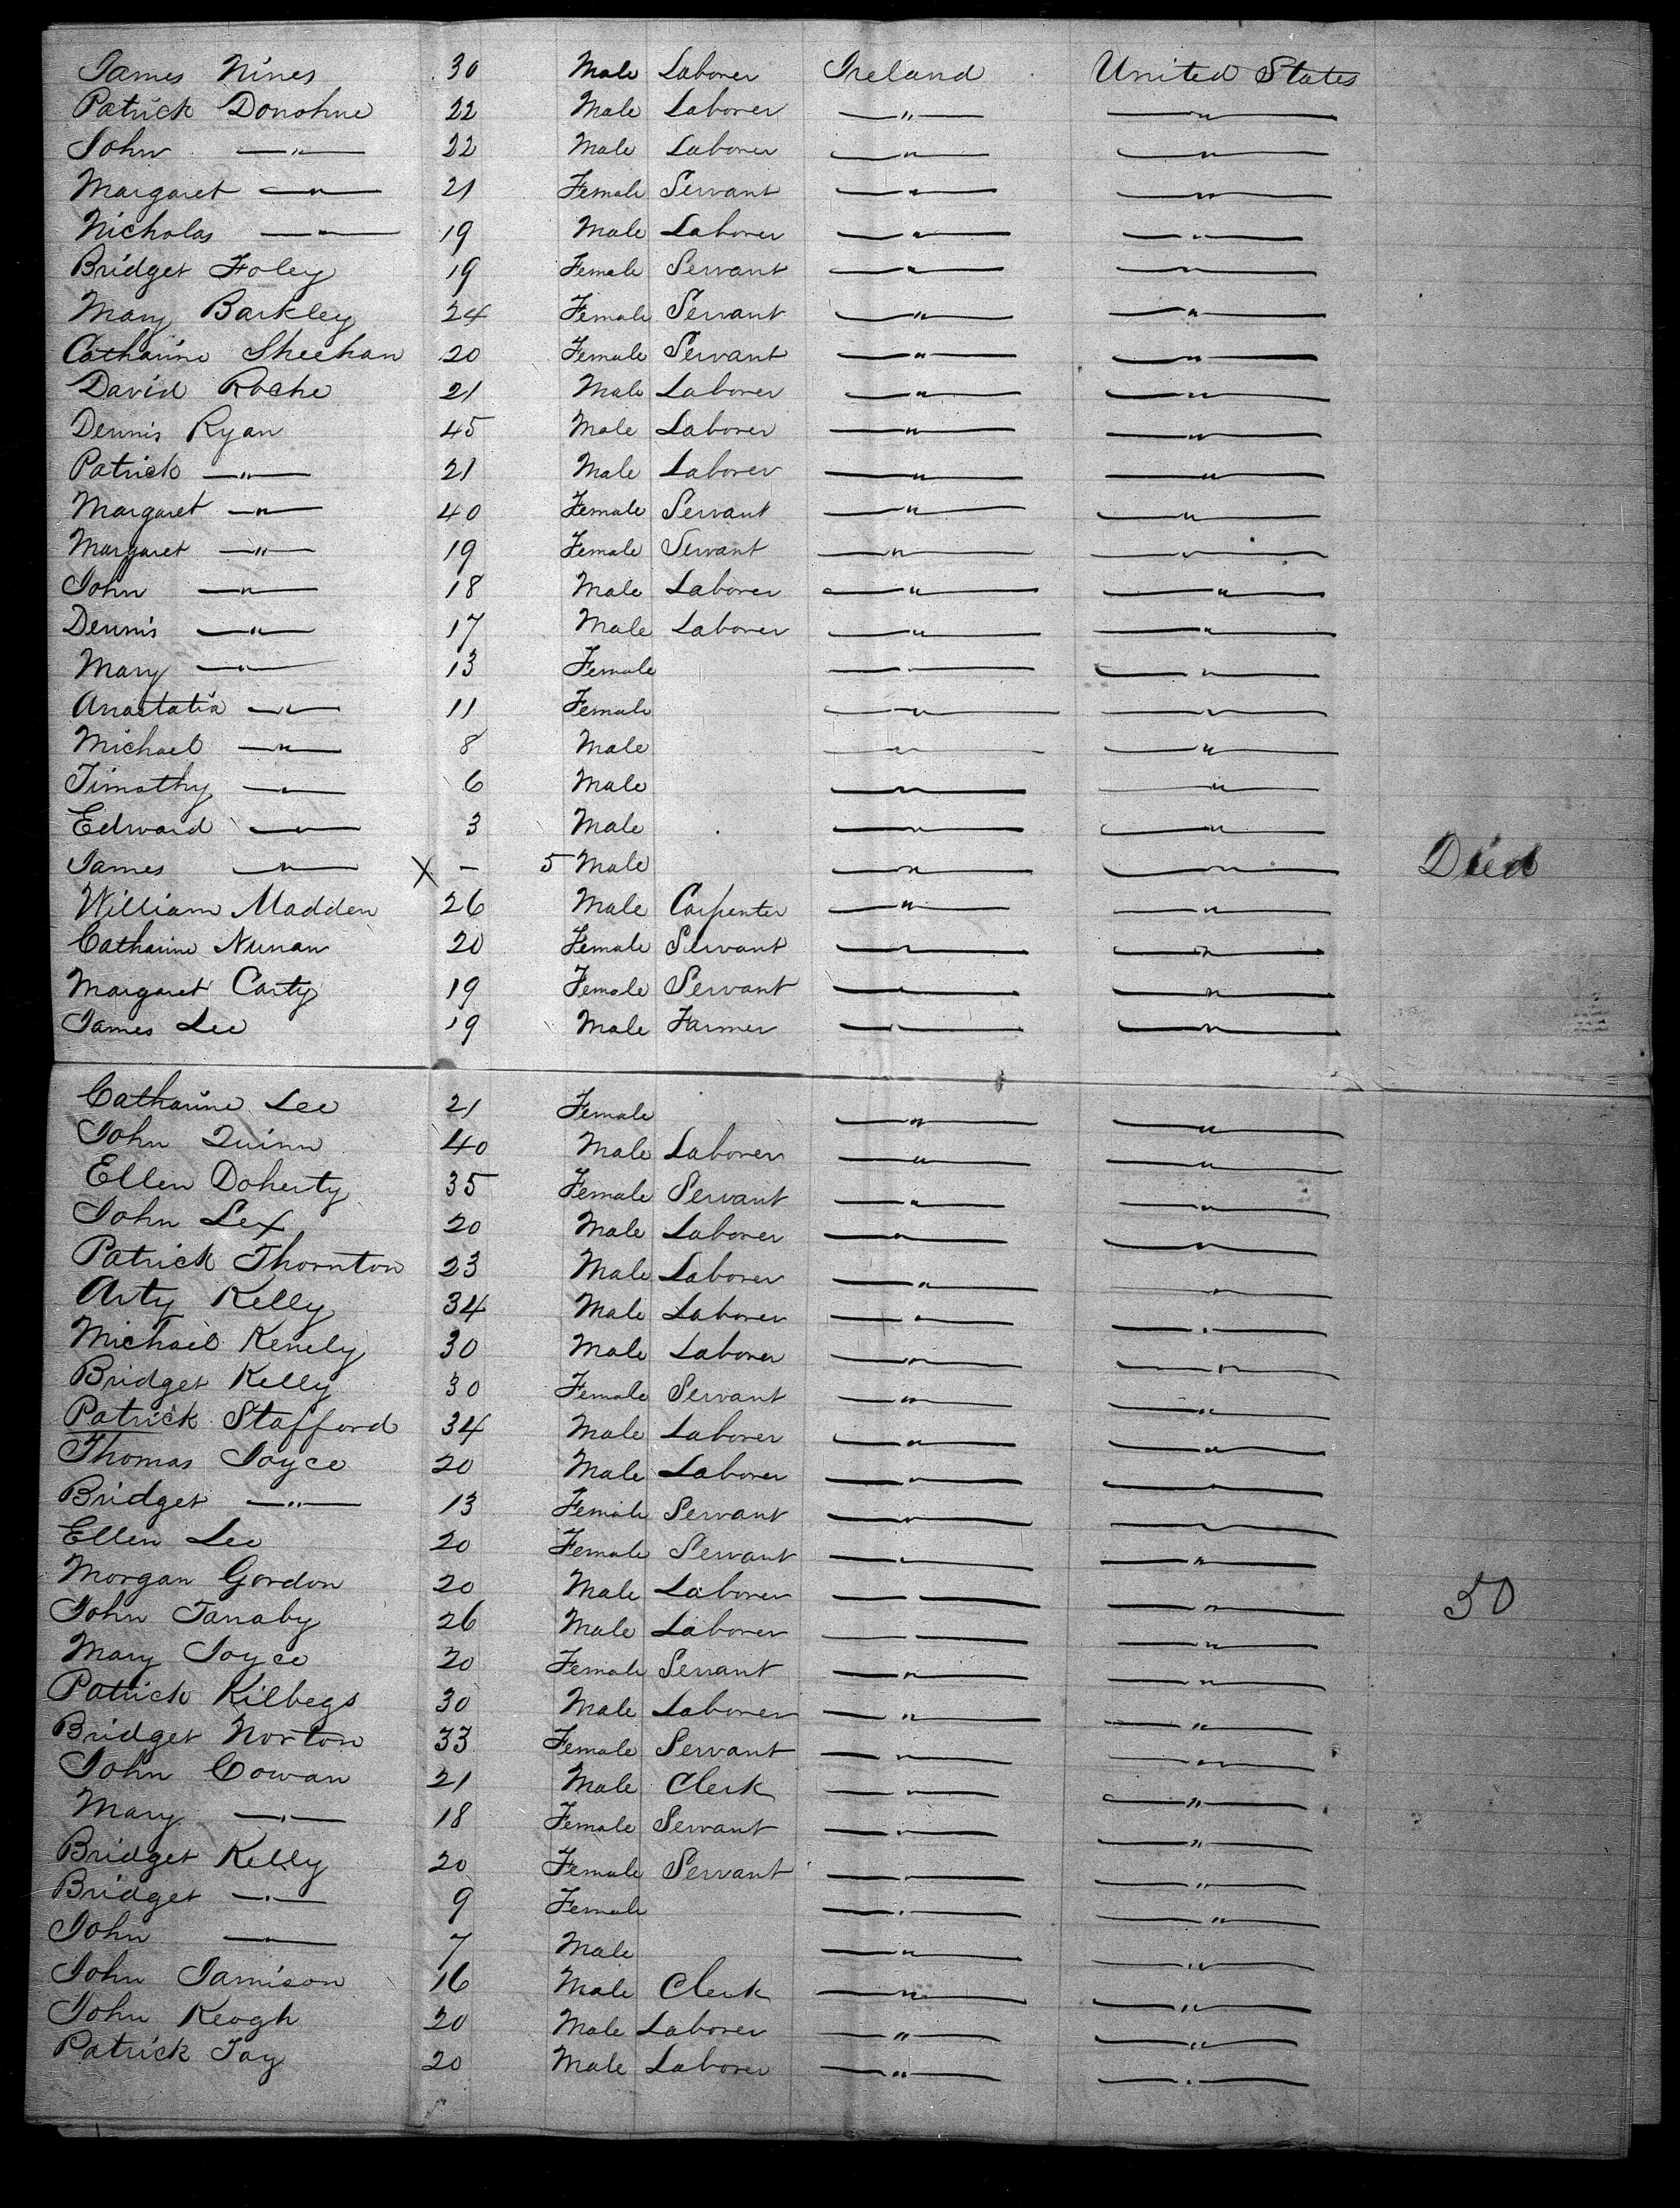 James Nines 30 Male Laborer Ireland United States
Patrick Donohue 22 Male Laborer —"— —"—
John —"— 22 Male Laborer —"— —"—
Margaret —"— 21 Female Servant —"— —"—
Nicholas —"— 19 Male Laborer —"— —"—
Bridget Foley 19 Female Servant —"— —"—
Mary Barkley 24 Female Servant —"— —"—
Catharine Sheehan 20 Female Servant —"— —"—
David Roche 21 Male Laborer —"— —"—
Dennis Ryan 45 Male Laborer —"— —"—
Patrick —"— 21 Male Laborer —"— —"—
Margaret —"— 40 Female Servant —"— —"—
Margaret —"— 19 Female Servant —"— —"—
John —"— 18 Male Laborer —"— —"—
Dennis —"— 17 Male Laborer —"— —"—
Mary —"— 13 Female —"— —"—
Anastatia —"— 11 Female —"— —"—
Michael —"— 8 Male —"— —"—
Timothy —"— 6 Male —"— —"—
Edward —"— 3 Male —"— —"—
James —"— X - 5 Male —"— —"— Died
William Madden 26 Male Carpenter —"— —"—
Catharine Nunan 20 Female Servant —"— —"—
Margaret Carty 19 Female Servant —"— —"—
James Lee 19 Male Farmer —"— —"—
Catharine Lee 21 Female —"— —"—
John Quinn 40 Male Laborer —"— —"—
Ellen Doherty 35 Female Servant —"— —"—
John Lex 20 Male Laborer —"— —"—
Patrick Thornton 23 Male Laborer —"— —"—
Arty Kelly 34 Male Laborer —"— —"—
Michael Kenely 30 Male Laborer —"— —"—
Bridget Kelly 30 Female Servant —"— —"—
Patrick Stafford 34 Male Laborer —"— —"—
Thomas Joyce 20 Male Laborer —"— —"—
Bridget —"— 13 Female Servant —"— —"—
Ellen Lee 20 Female Servant —"— —"—
Morgan Gordon 20 Male Laborer —"— —"— 50
John Tanaby 26 Male Laborer —"— —"—
Mary Joyce 20 Female Servant —"— —"—
Patrick Kilbegs 30 Male Laborer —"— —"—
Bridget Norton 33 Female Servant —"— —"—
John Cowan 21 Male Clerk —"— —"—
Mary —"— 18 Female Servant —"— —"—
Bridget Kelly 20 Female Servant —"— —"—
Bridget —"— 9 Female —"— —"—
John —"— 7 Male —"— —"—
John Jamison 16 Male Clerk —"— —"—
John Keogh 20 Male Laborer —"— —"—
Patrick Fay 20 Male Laborer —"— —"—